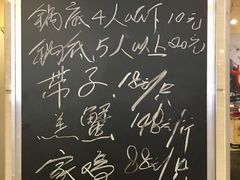 鍋底4人以下10元
鍋底5人以上20元
带子18元/只
羔蟹148元/斤
家鸡88元/只